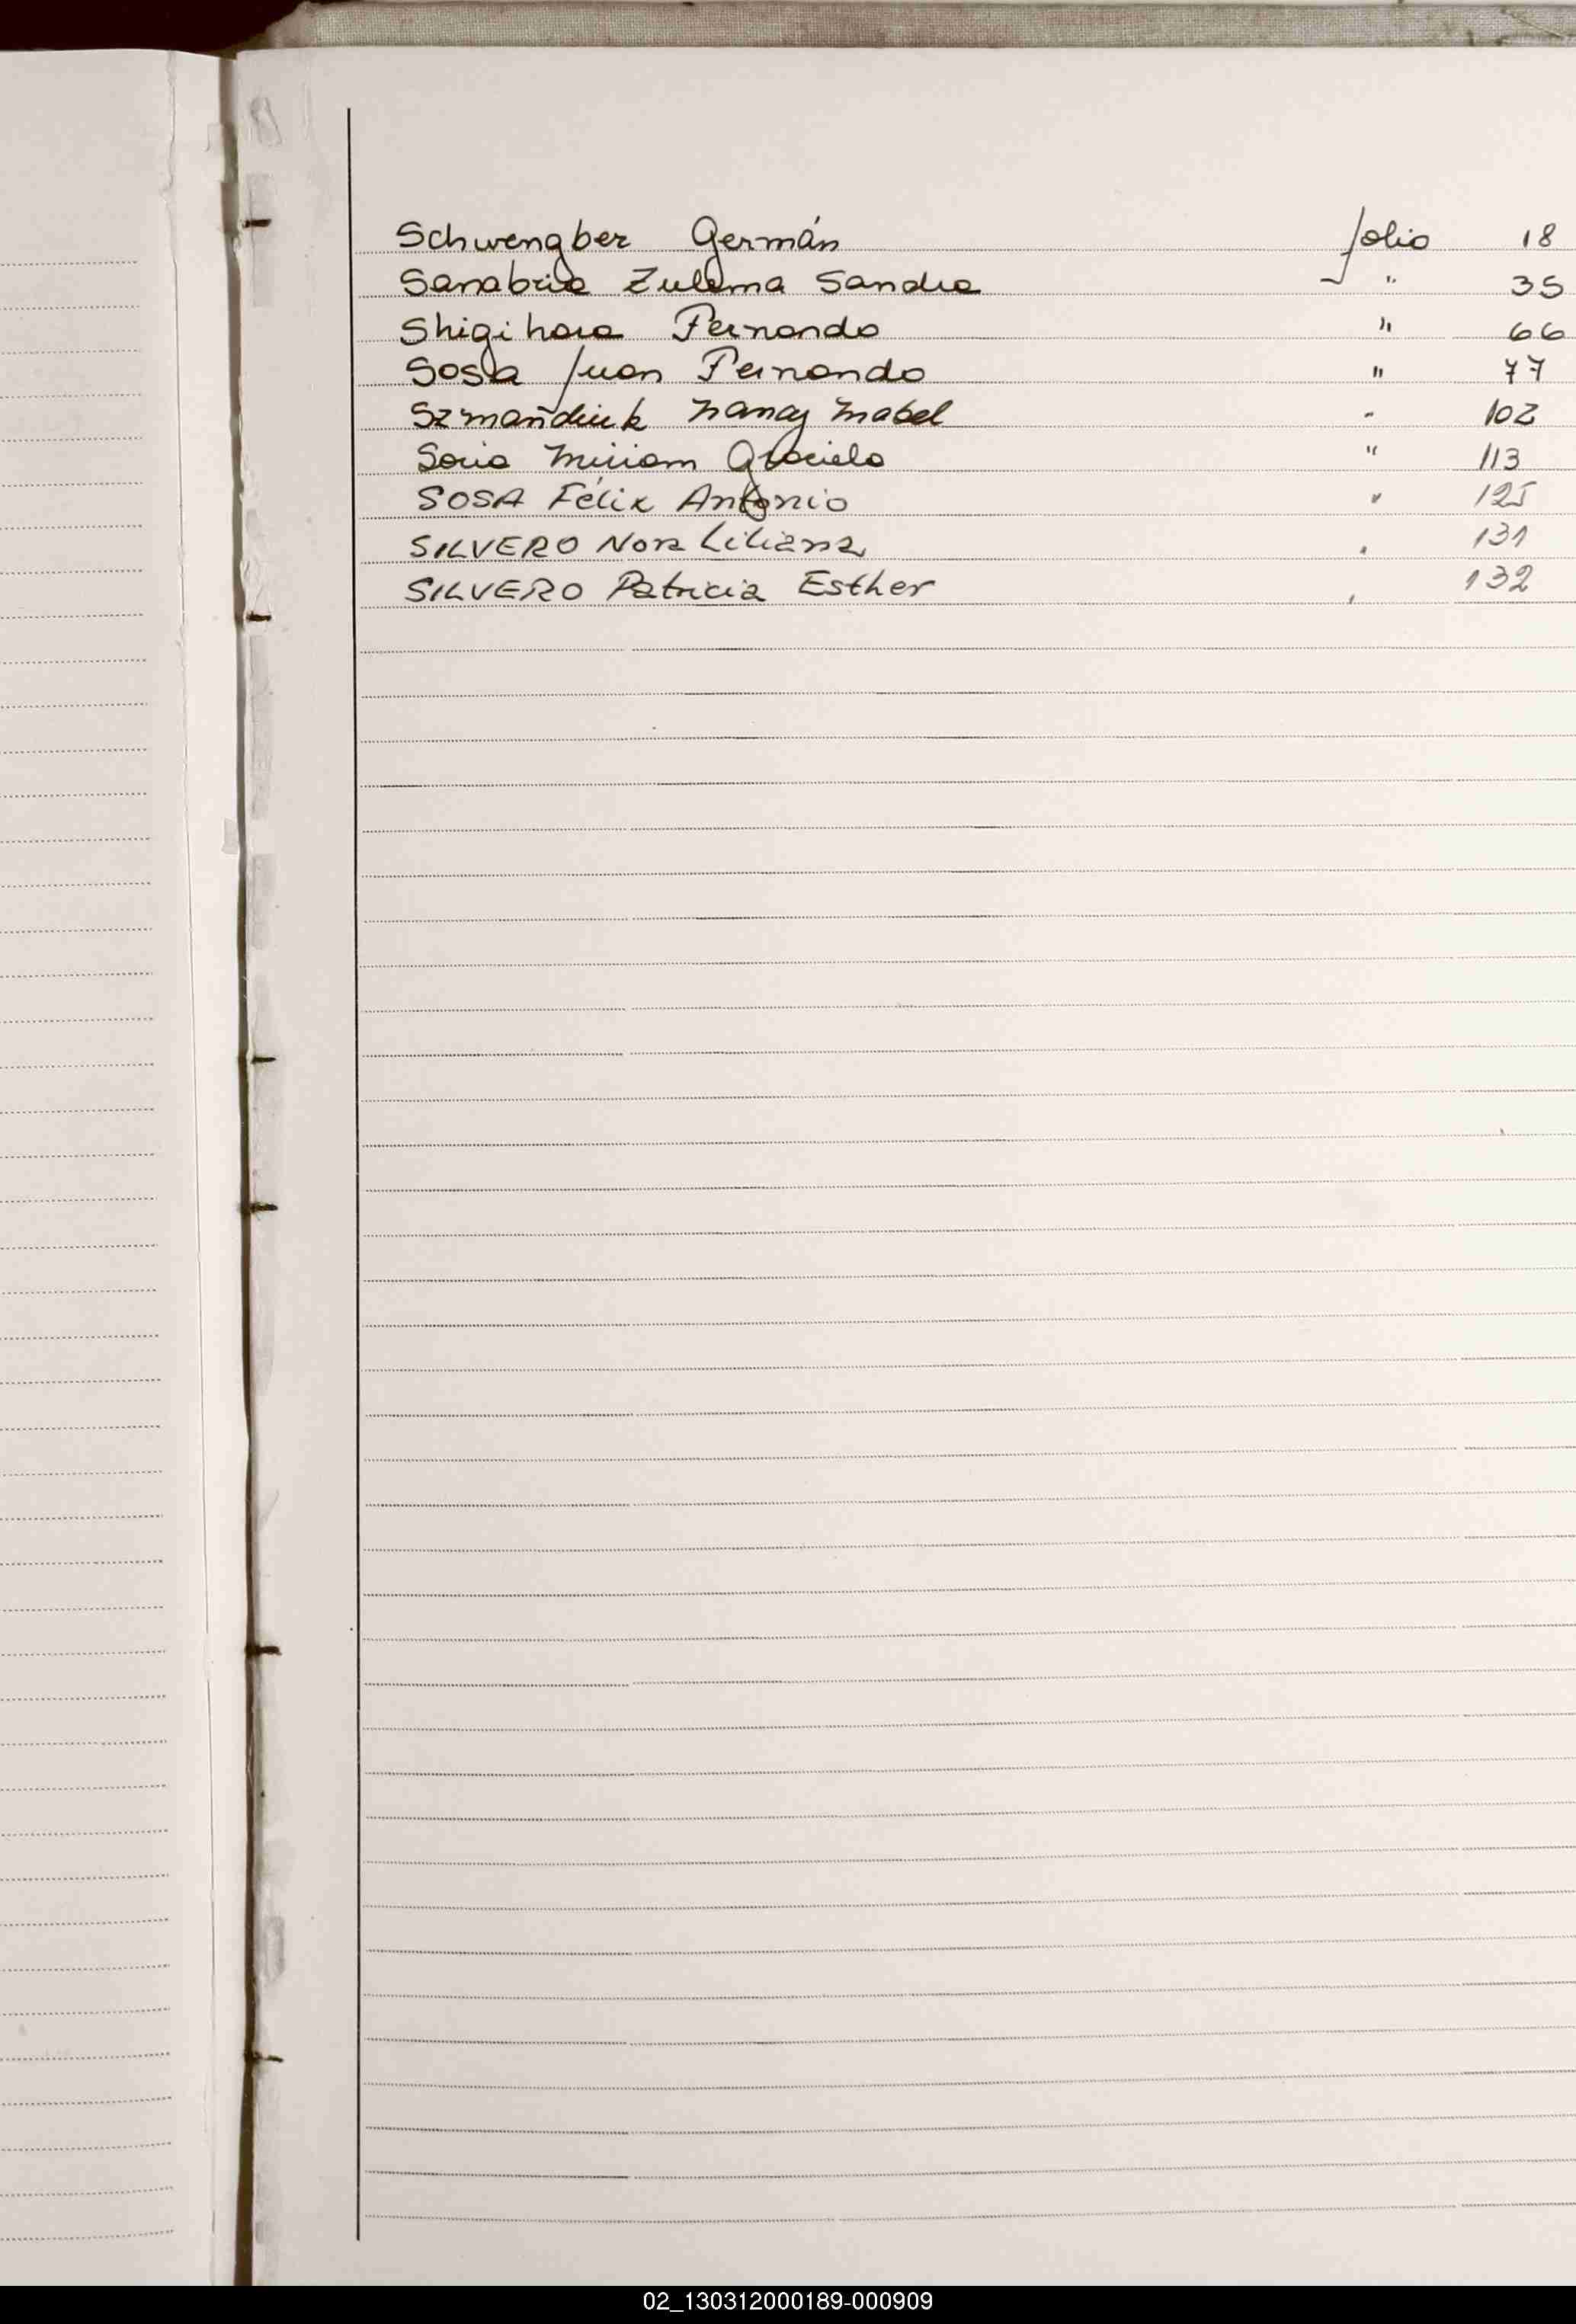 Schwengber Germán folio 18
Sanabria Zulema Sandra " 35
Shigihara Fernando " 66
Sosa Juan Fernando " 77
Szmañdiuk Nancy Mabel " 102
Soria Miriam Graciela " 113
SOSA Félix Antonio " 125
SILVERO Nora Liliana " 131
SILVERO Patricia Esther " 132
02_130312000189-000909